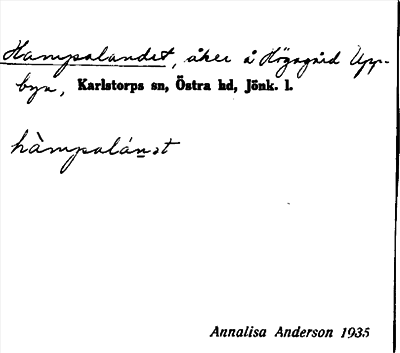 Hampalandet, åker å Högagård Upp-
byn, Karlstorps sn, Östra hd, Jönk. l.
hàmpalánət
Annalisa Anderson 1935